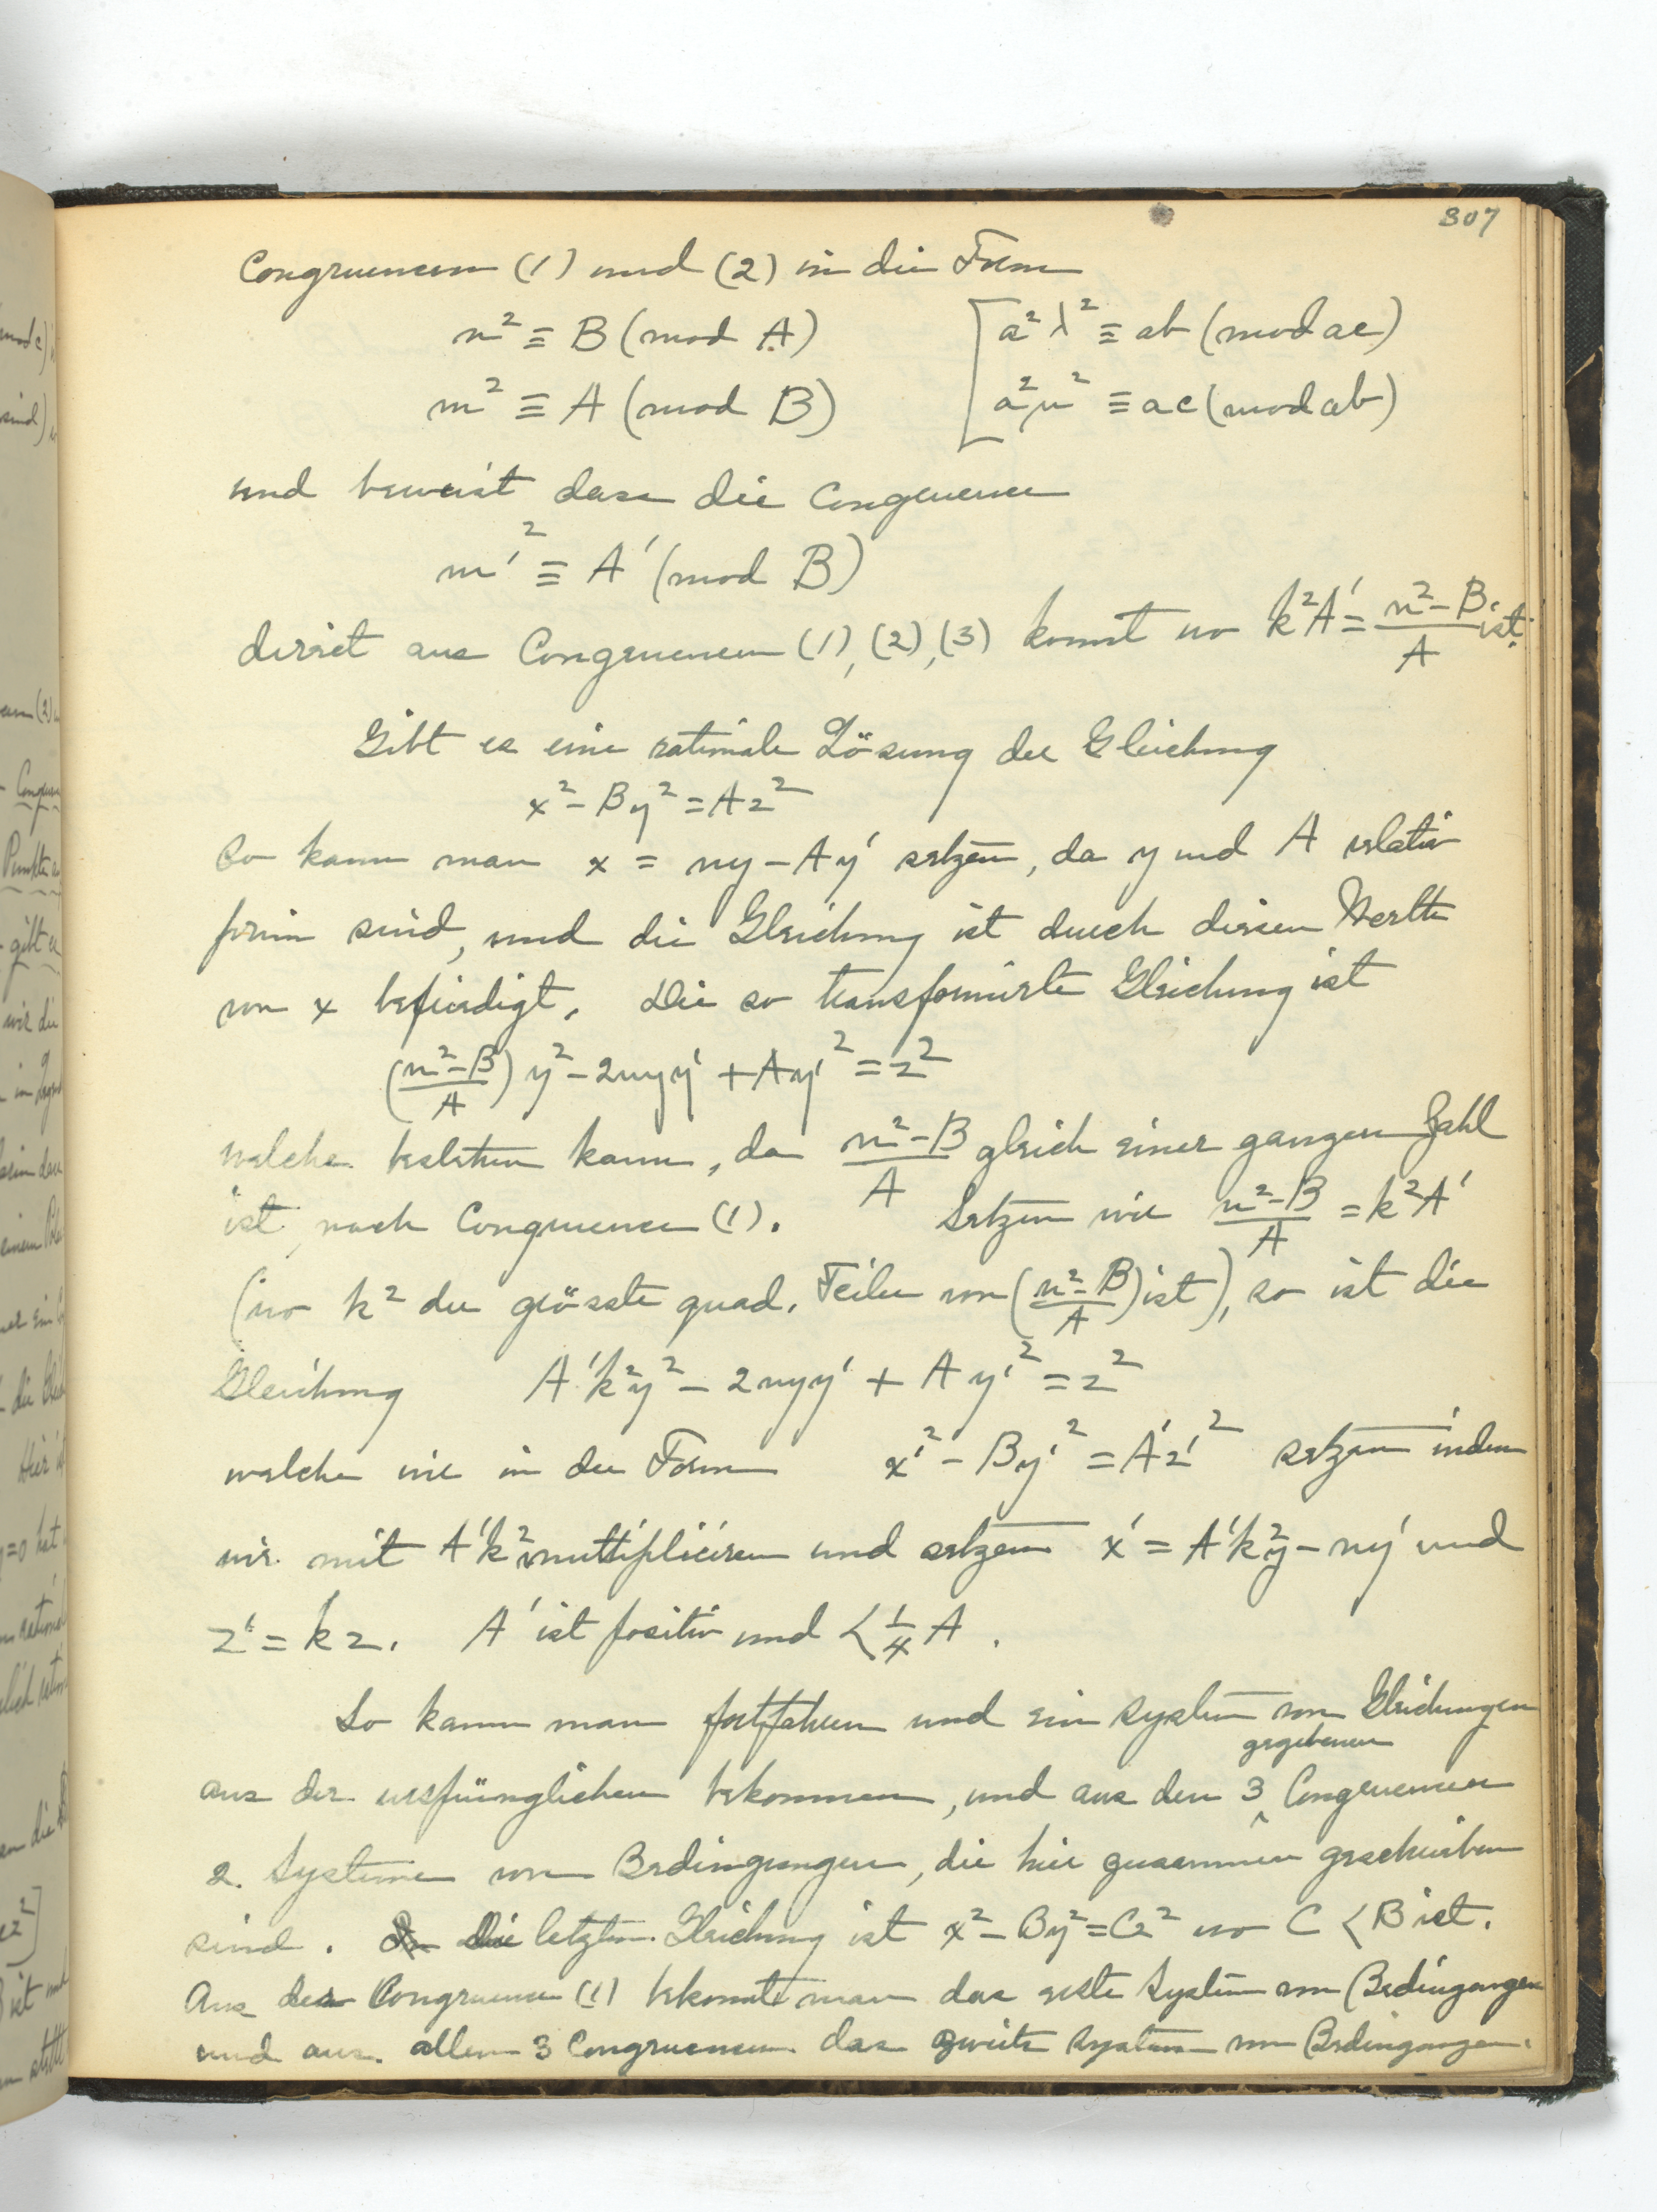 307
Congruenzen (1) und (2) in die Form
n² ≡ B (mod A) [a²λ² ≡ ab (mod ac)
m² ≡ A (mod B) a²μ² ≡ ac (mod ab)
und beweist dass die Congruenz
m'² ≡ A' (mod B)
direct aus Congruenzen (1), (2), (3) kommt wo k²A' = (n²-B)/A ist.
Gibt es eine rationale Lösung der Gleichung
x² - By² = Az²
so kann man x = ny - Ay' setzen, da y und A relativ
prim sind, und die Gleichung ist durch diesen Werth
von x befriedigt. Die so transformirte Gleichung ist
((n²-B)/A) y² - 2nyy' + Ay'² = z²
welche bestehen kann, da (n²-B)/A gleich einer ganzen Zahl
ist, nach Congruenz (1). Setzen wir (n²-B)/A = k²A'
(wo k² der grösste quad. Teiler von ((n²-B)/A) ist), so ist die
Gleichung A'k²y² - 2nyy' + Ay'² = z²
welche wir in der Form x'² - By'² = A'z'² setzen indem
wir mit A'k² multipliciren und setzen x' = A'k²y - ny' und
z' = kz. A' ist positiv und < ¼ A.
So kann man fortfahren und ein System von Gleichungen
aus der ursprünglichen bekommen, und aus den 3 gegebenen Congruenzen
2. Systeme von Bedingungen, die hier zusammen geschrieben
sind. Die letzte Gleichung ist x² - By² = Cz² wo C < B ist.
Aus der Congruenz (1) bekommt man das erste System von Bedingungen
und aus allen 3 Congruenzen das zweite System von Bedingungen.